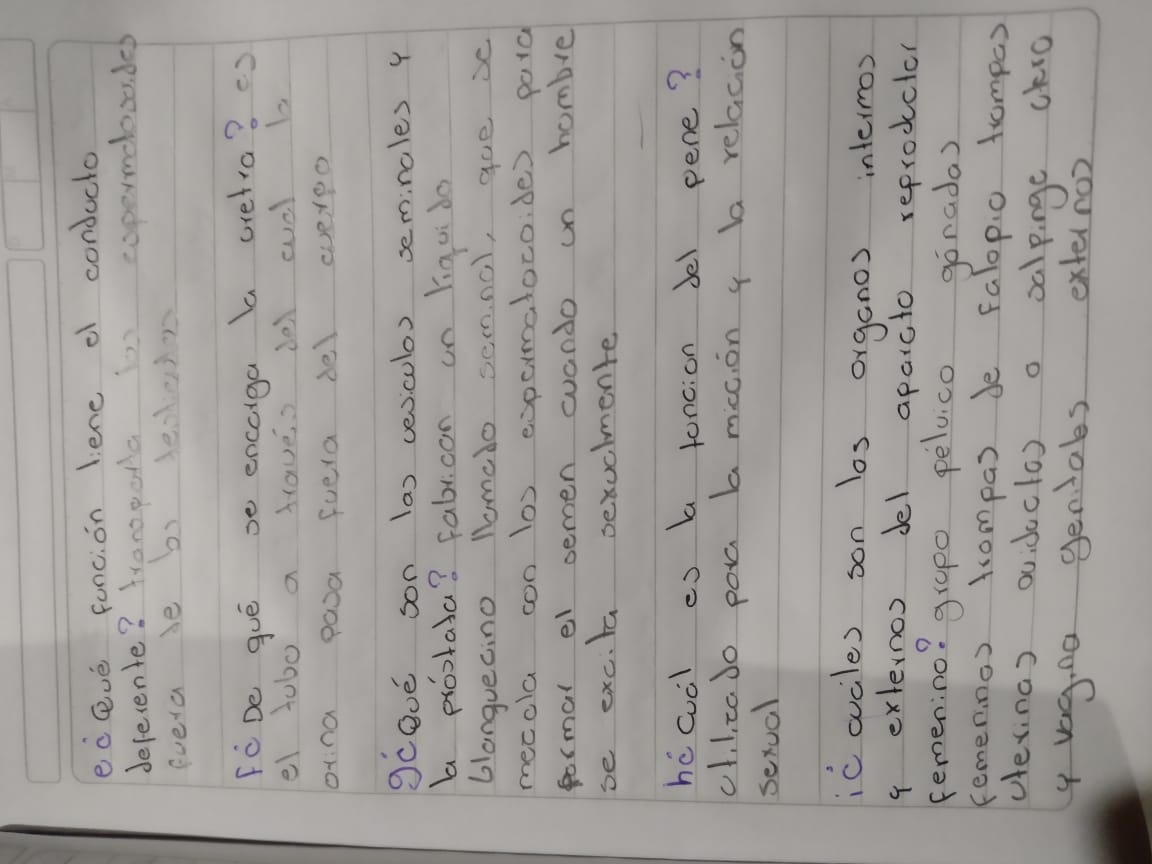 e¿ Qué función tiene el conducto
deferente? transporta los espermatosoides
fuera de los testiculos
f¿ De qué se encarga la uretra? es
el tubo a través del cual la
orina pasa fuera del cuerpo
g¿ Qué son las vesiculas seminales y
la próstata? Fabrican un líquido
blanquecino llamado seminal, que se
mezcla con los espermatozoides para
formar el semen cuando un hombre
se excita sexualmente
h¿ Cuál es la funcion del pene?
utilizado para la micción y la relación
sexual
i¿ cuáles son los organos internos
y externos del aparcto reproductor
femenino? grupo pélvico gónadas
femeninos trompas de falopio trompas
uterinas oviductos o salpinge utero
y vagina genitales externos